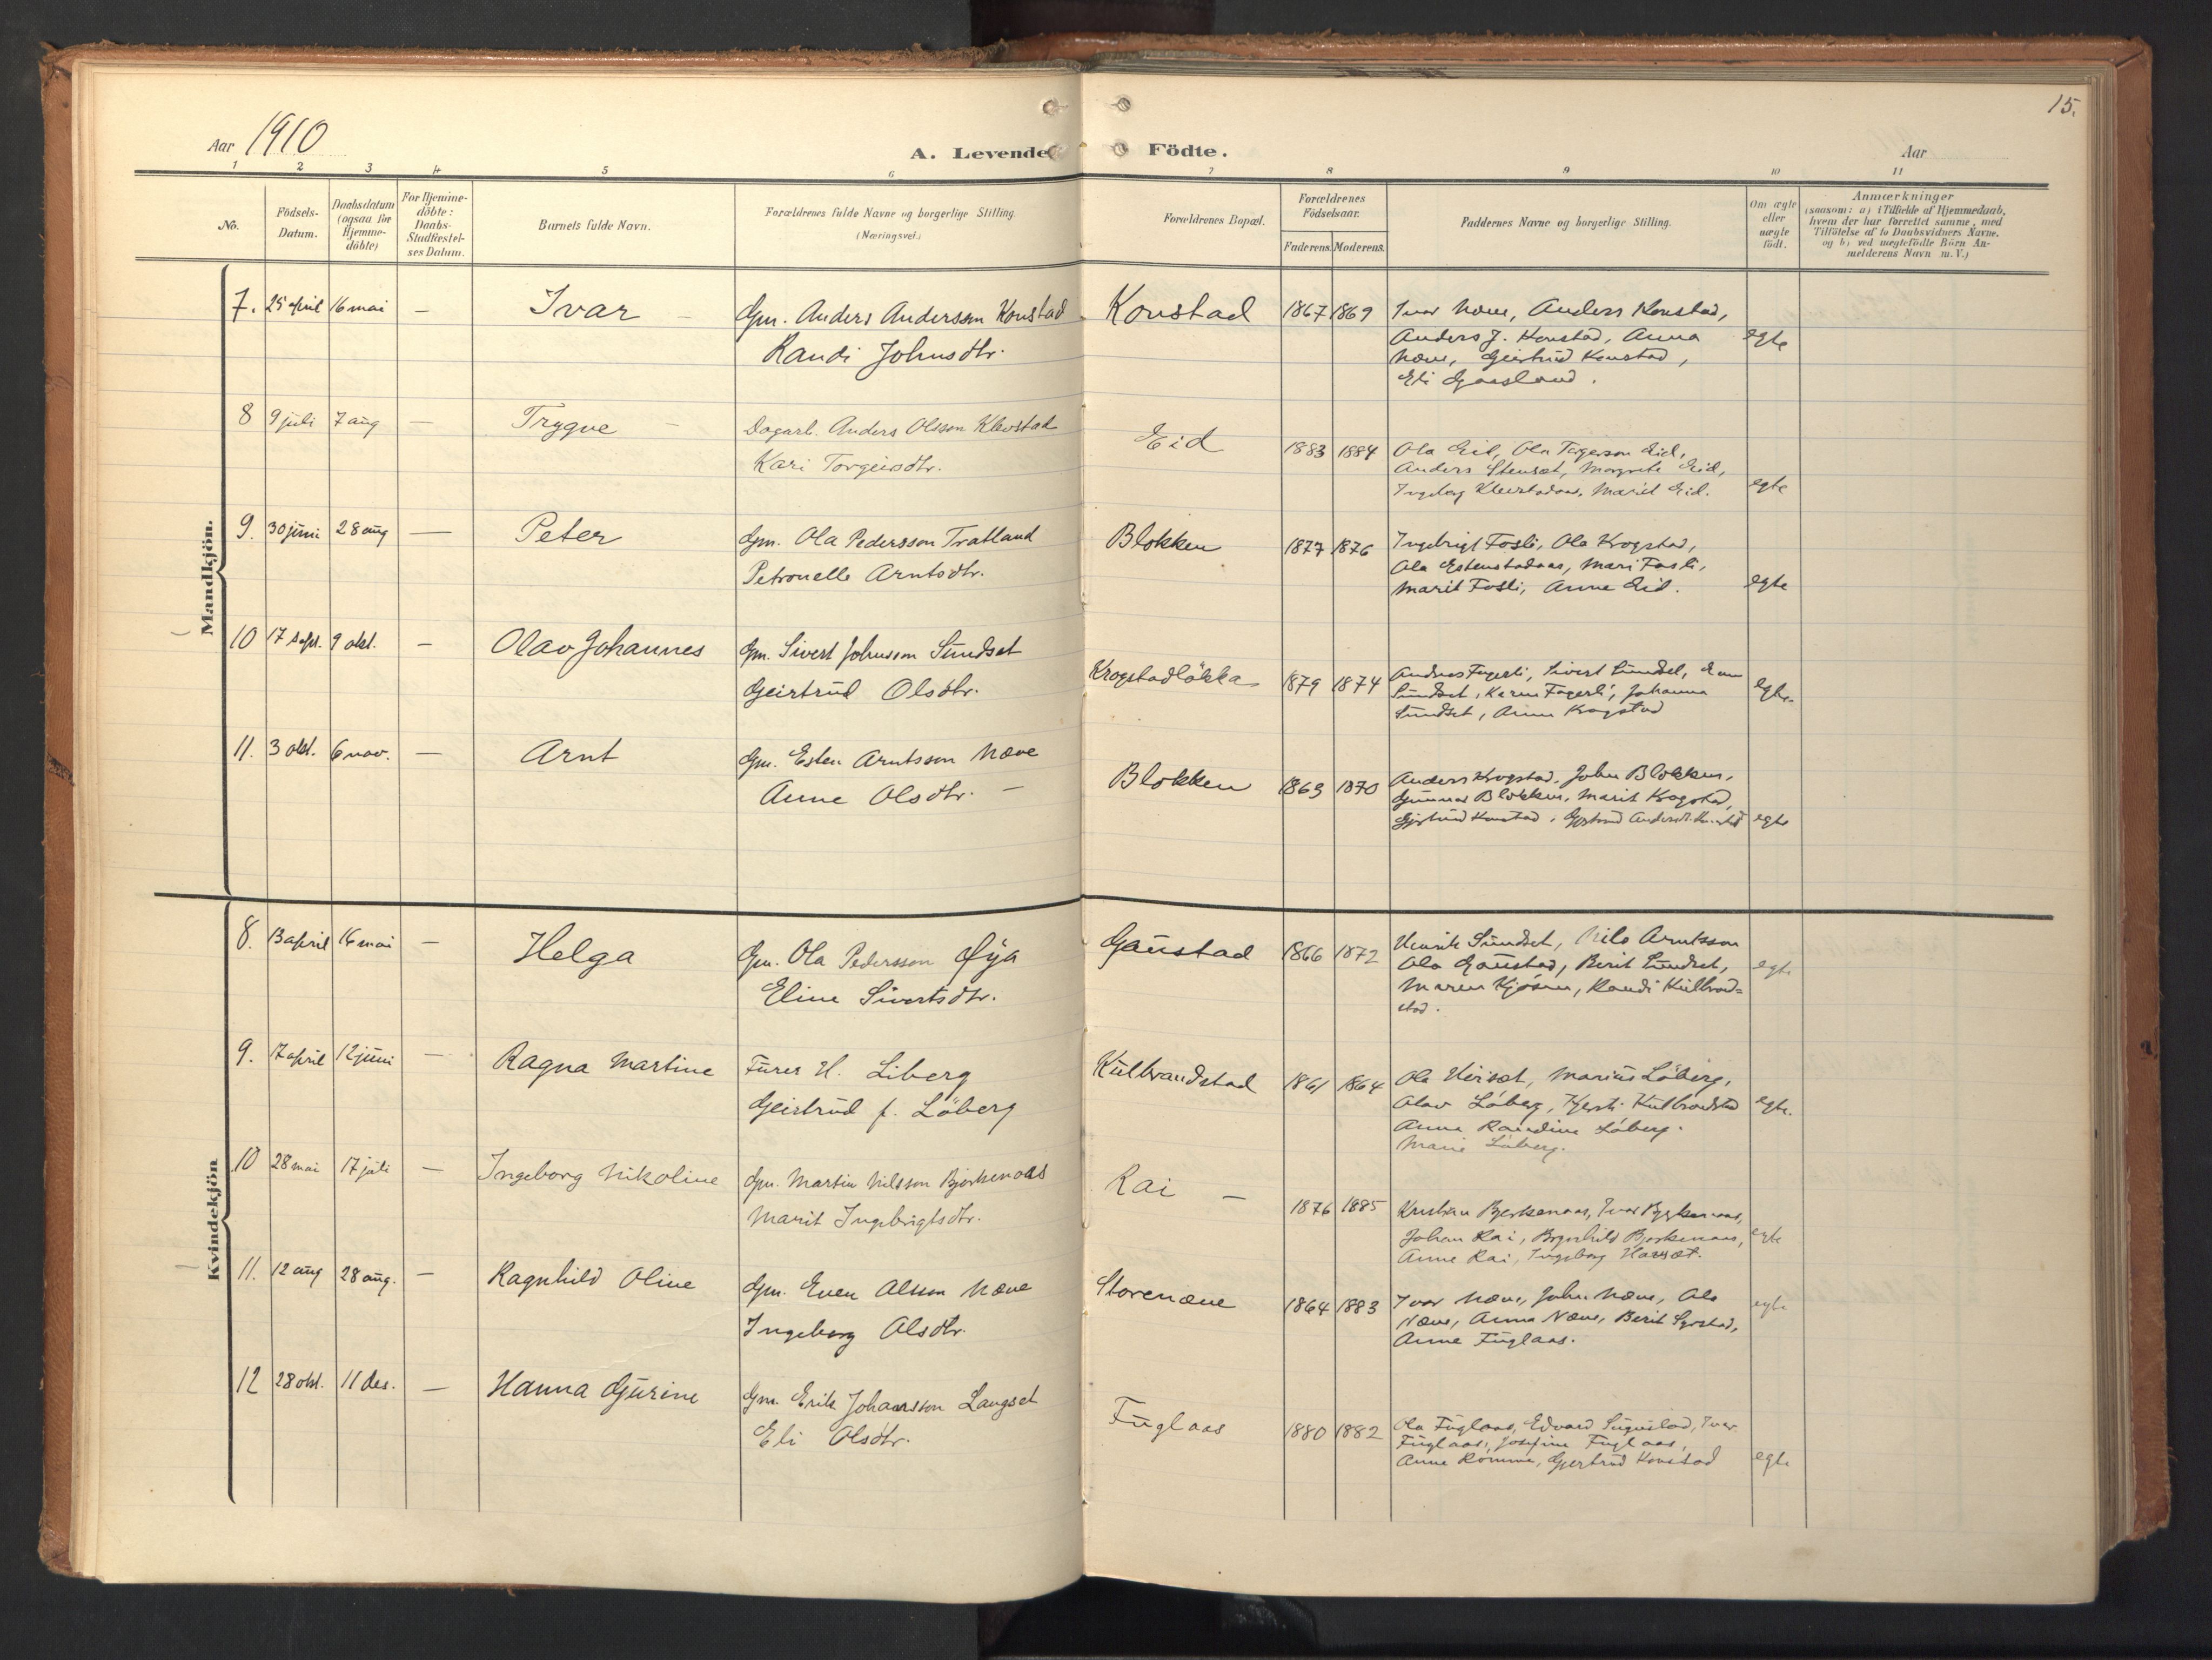 15.
Aar 1910
A. Levende Födte.
Aar
1 2 3 4 5 6 7 8 9 10 11
No.
Födsels-
Datum.
Daabsdatum
(ogsaa for
Hjemme-
döbte)
For Hjemme-
döbte:
Daabs-
Stadfæstel-
ses Datum.
Barnets fulde Navn.
Forældrenes fulde Navne og borgerlige Stilling.
(Næringsvei.)
Forældrenes Bopæl.
Forældrenes
Födselsaar.
Faderens. Moderens.
Faddernes Navne og borgerlige Stilling.
Om ægte
eller
uægte
födt.
Anmærkninger
(saasom: a) i Tilfælde af Hjemmedaab,
hvem der har forrettet samme, med
Tilföielse af to Daabsvidners Navne,
og b) ved uægtefödte Börn An-
melderens Navn m. V.)
Mandkjön.
7. 25 april 16 mai — Ivar — Gm. Anders Anderssen Konstad
Randi Johnsdtr.
Konstad 1867 1869 Ivar Næve, Anders Konstad,
Anders J. Konstad, Anna
Næve, Geirtrud Konstad,
Eli Gaasland.
egte
8 9 juli 7 aug — Trygve — Dagarb. Anders Olsson Klevstad
Kari Torgeirsdtr.
Eid 1883 1884 Ola Eid, Ola Torgerson Eid,
Anders Stensæt, Margrete Eid,
Ingeborg Marit Eid.
egte
9. 30 juni 28 aug — Peter Gm. Ola Pedersson Tratland
Petronelle Arntsdtr.
Blokken 1877 1876 Ingebrigt Fosli, Ola Krogstad,
Ola Estenstadaas, Mari Fosli,
Marit Fosli, Anne Eid.
egte
10 17 sept. 9 okt. — Olav Johannes Gm. Sivert Johnsson Sundset
Geirtrud Olsdtr.
Krogstadløkka 1879 1874 Anders Fagerli, Sivert Sundset,
Sundset, Karen Fagerli, Johanna
Sundset, Anne Krogstad
egte.
11. 3 okt. 6 nov. — Arnt Gm. Esten Arntsson Næve
Anne Olsdtr. —
Blokken 1863 1870 Anders Krogstad, John Blokken,
Gunnar Blokken, Marit Krogstad,
Gjertrud Konstad, Gjertrud
egte
Kvindekjön
8. 13 april 16 mai — Helga Gm. Ola Pedersson Øya
Eline Sivertsdtr.
Gaustad 1866 1872 Henrik Sundset, Nils Arntsson
Ola Gaustad, Berit Sundset,
Maren Kjøsen, Randi Kulbrand=
stad.
egte
9. 17 april 12 juni — Ragna Martine Furer H. Liberg
Geirtrud f. Løberg
Kulbrandstad 1861 1864 Ola Marius Løberg,
Olav Løberg, Kjersti Kulbrandstad
Anna Randine Løberg.
Marie Løberg.
egte.
10 28 mai 17 juli — Ingeborg Nikoline Gm. Martin Nilsson Bjørkenaas
Marit Ingebrigtsdtr.
Rai — 1876 1885 Kristian Bjerkenaas, Ivar Bjerkenaas,
Johan Rai, Brynhild Bjerkenaas,
Anne Rai, Ingeborg Harsæt.
egte
11. 12 aug 28 aug. — Ragnhild Oline Gm. Even Olsson Næve
Ingeborg Olsdtr.
Storenæve 1864 1883 Ivar Næve, John Næve, Ole
Næve, Anna Næve, Berit
Anne Fuglaas.
egte
12 28 okt. 11 des. — Hanna Gjurine Gm. Erik Johansson Langset
Eli Olsdtr.
Fuglaas 1880 1882 Ola Fuglaas, Edvard Ivar
Fuglaas, Josefine Fuglaas,
Anne Romme, Gjertrud Konstad
egte